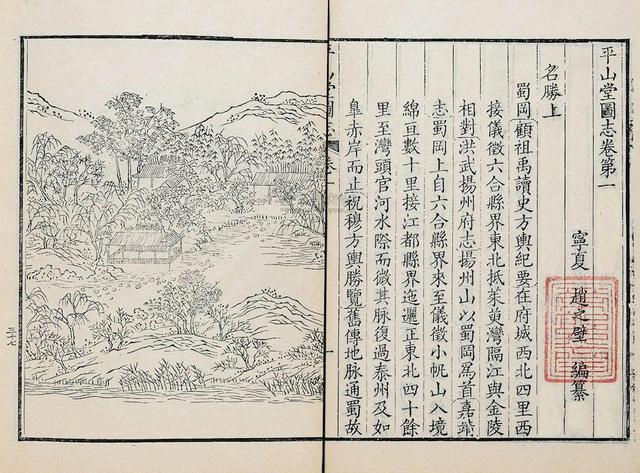 平山堂圖志卷第一
寧夏 趙之壁 編纂
名勝上
蜀岡顧祖禹讀史方輿紀要在府城西北四里西
接儀徵六合縣界東北抵茱萸灣隔江與金陵
相對洪武揚州府志揚州山以蜀岡爲首嘉靖
志蜀岡上自六合縣界來至儀徵小帆山入境
綿亘數十里接江都縣界迤邐正東北四十餘
里至灣頭官河水際而微其脉復過泰州及如
臯赤岸而止祝穆方輿勝覽舊傳地脉通蜀故